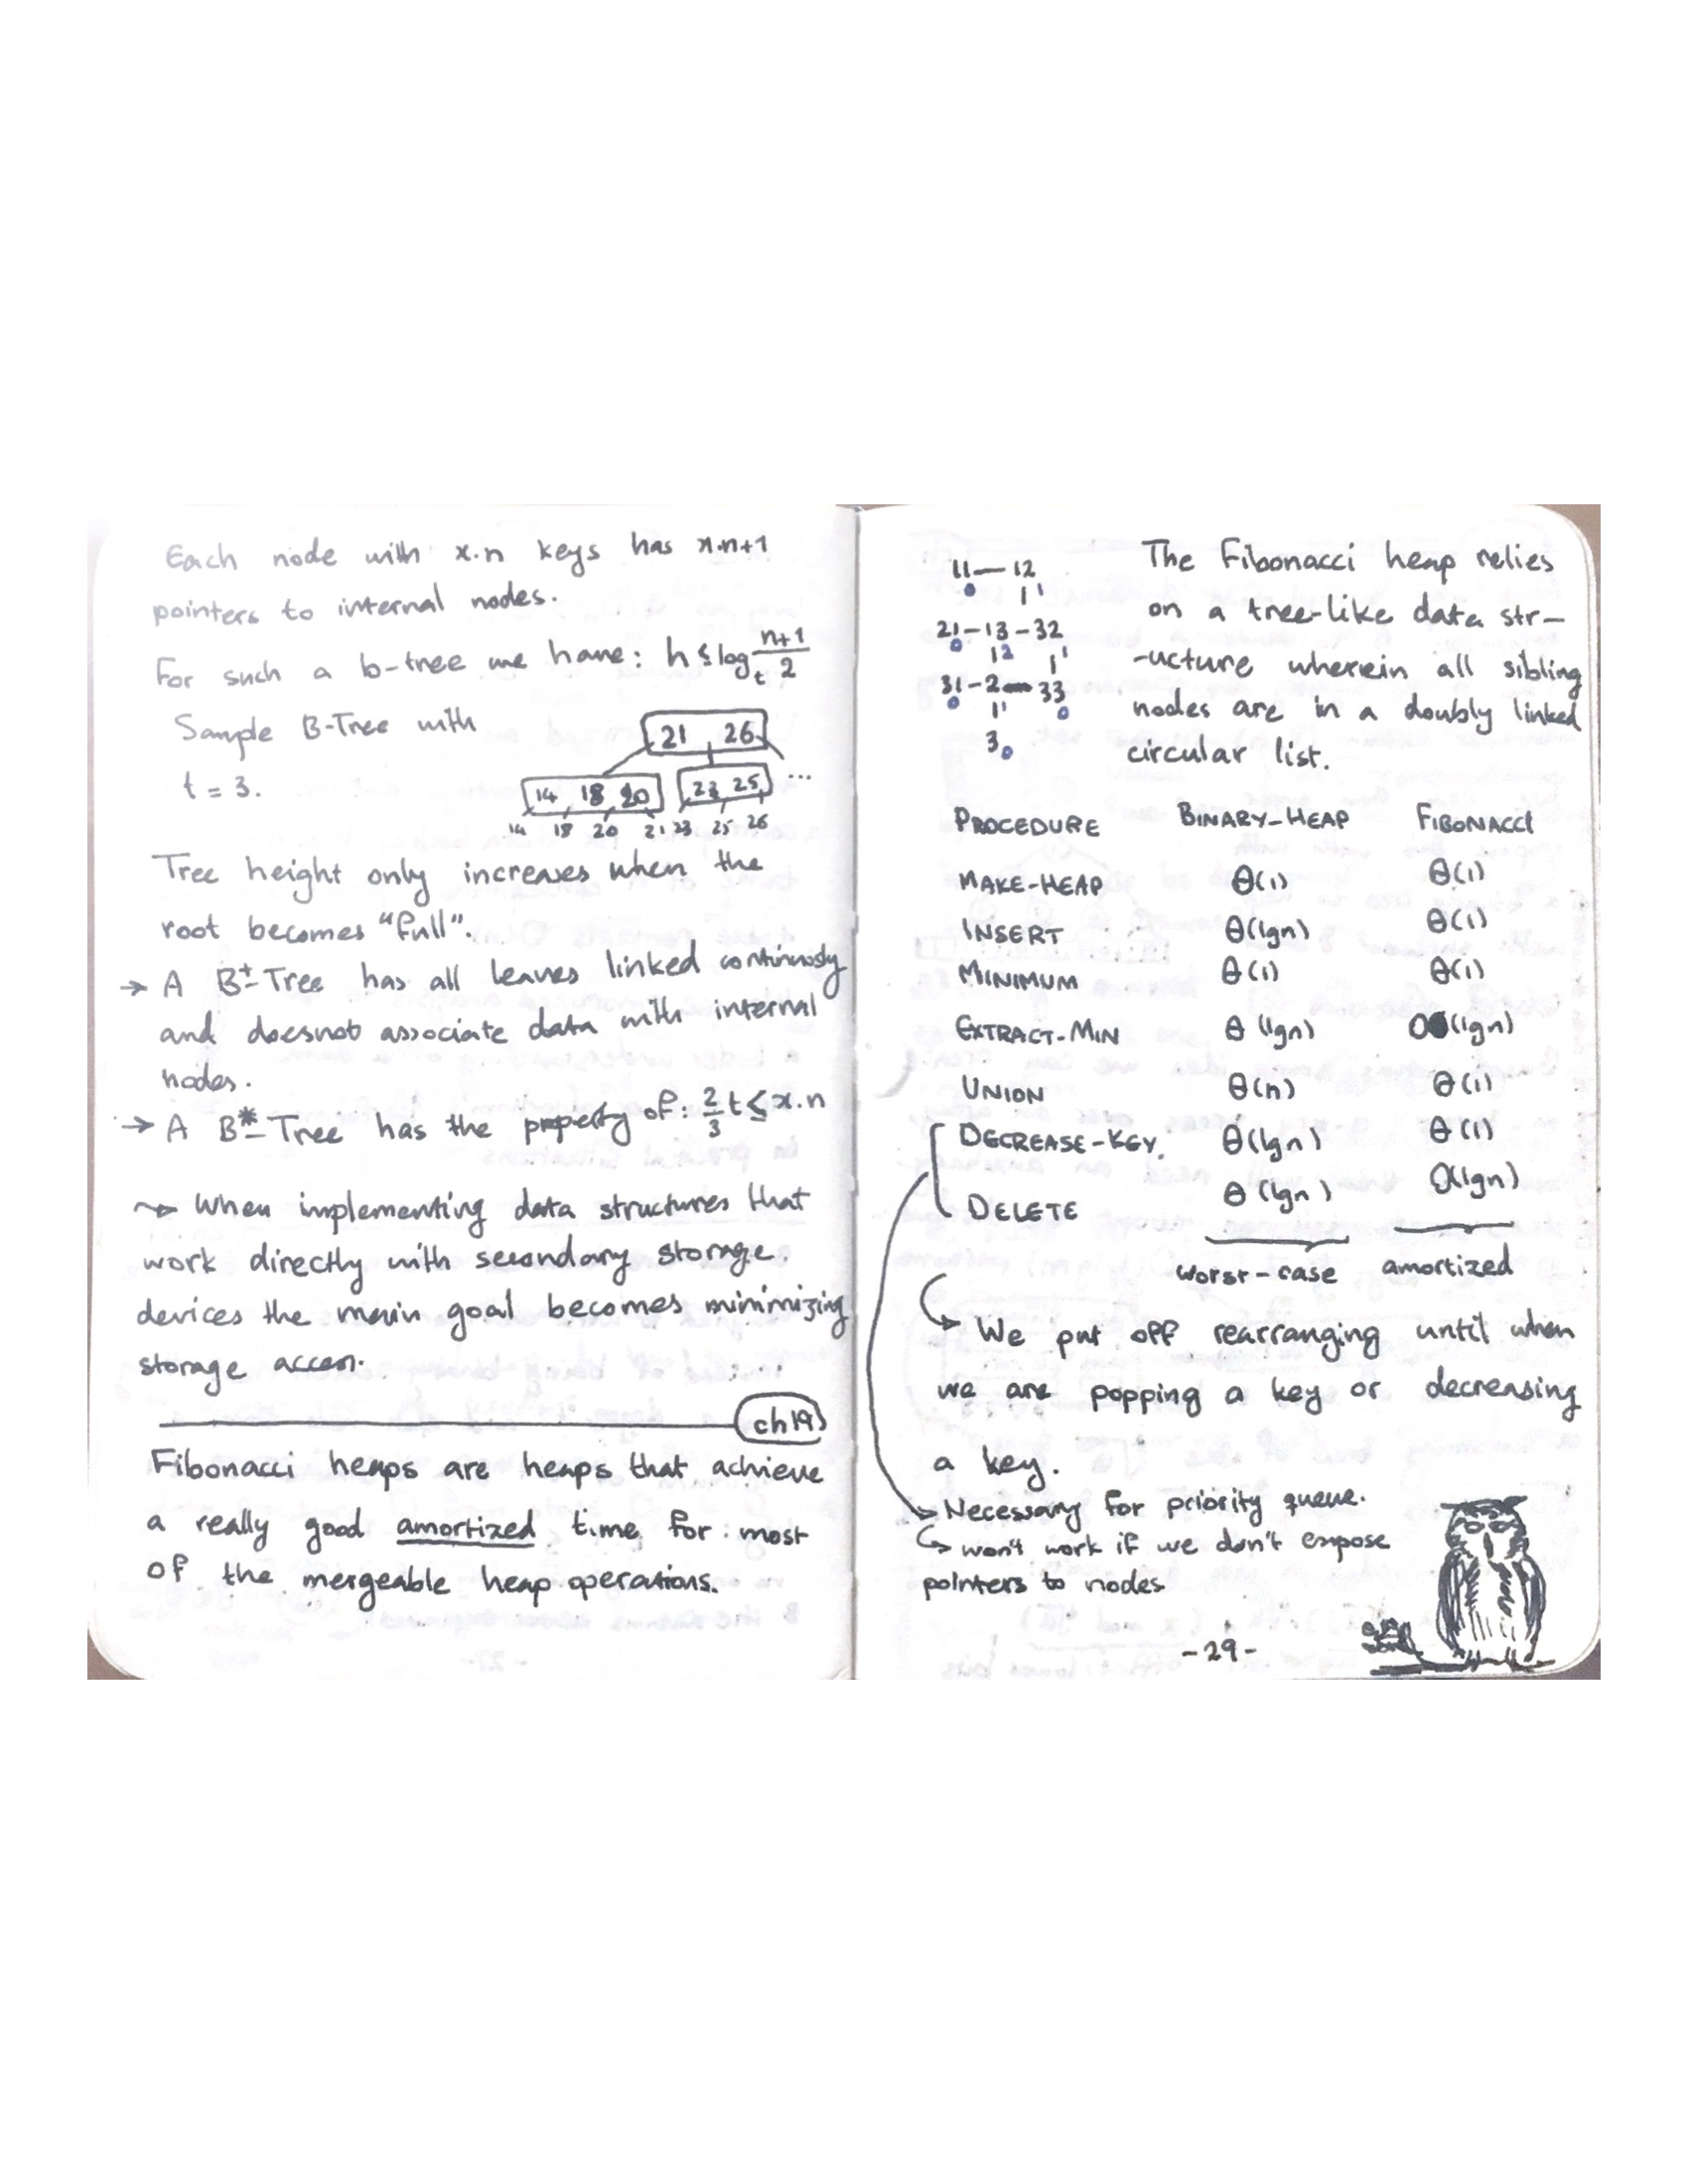 Each node with x.n keys has x.n+1
pointers to internal nodes.
For such a b-tree we have: h ≤ log_t (n+1)/2
Sample B-Tree with
t = 3.
21 26
14 18 20 23 25 ...
14 18 20 21 23 25 26
Tree height only increases when the
root becomes "full".
→ A B+-Tree has all leaves linked continuously
and doesnot associate data with internal
nodes.
→ A B*-Tree has the property of: 2/3 t ≤ x.n
~> When implementing data structures that
work directly with secondary storage
devices the main goal becomes minimizing
storage access.
ch19
Fibonacci heaps are heaps that achieve
a really good amortized time for most
of the mergeable heap operations.
11 — 12
0 1 1
21 - 13 - 32
0 1 2 1 1
31 - 2 — 33
0 1 1 0
3 0
The Fibonacci heap relies
on a tree-like data str-
-ucture wherein all sibling
nodes are in a doubly linked
circular list.
PROCEDURE BINARY-HEAP FIBONACCI
MAKE-HEAP Θ(1) Θ(1)
INSERT Θ(lgn) Θ(1)
MINIMUM Θ(1) Θ(1)
EXTRACT-MIN Θ(lgn) O(lgn)
UNION Θ(n) Θ(1)
DECREASE-KEY Θ(lgn) Θ(1)
DELETE Θ(lgn) O(lgn)
worst-case amortized
↳ We put off rearranging until when
we are popping a key or decreasing
a key.
→ Necessary for priority queue.
↳ won't work if we don't expose
pointers to nodes
-29-